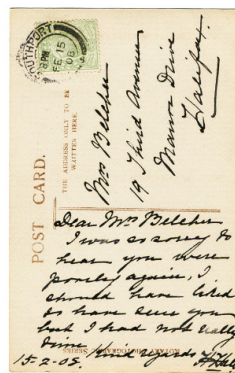 POST CARD.
THE ADDRESS ONLY TO BE
WRITTEN HERE.
SOUTHPORT
FE 15
08
Mrs Belcher
19 Third Avenue
Manor Drive
Halifax
Dear Mrs Belcher
I was so sorry to
hear you were
poorly again, I
should have liked
to have seen you
but I had not really
time Kind regards
15-2-08.
ROTARY PHOTOGRAPHIC SERIES